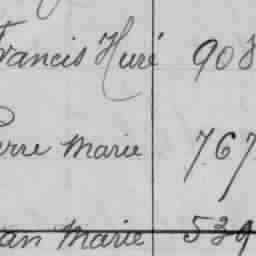 Francis Huré 908
Pierre Marie 767
Jean Marie 539